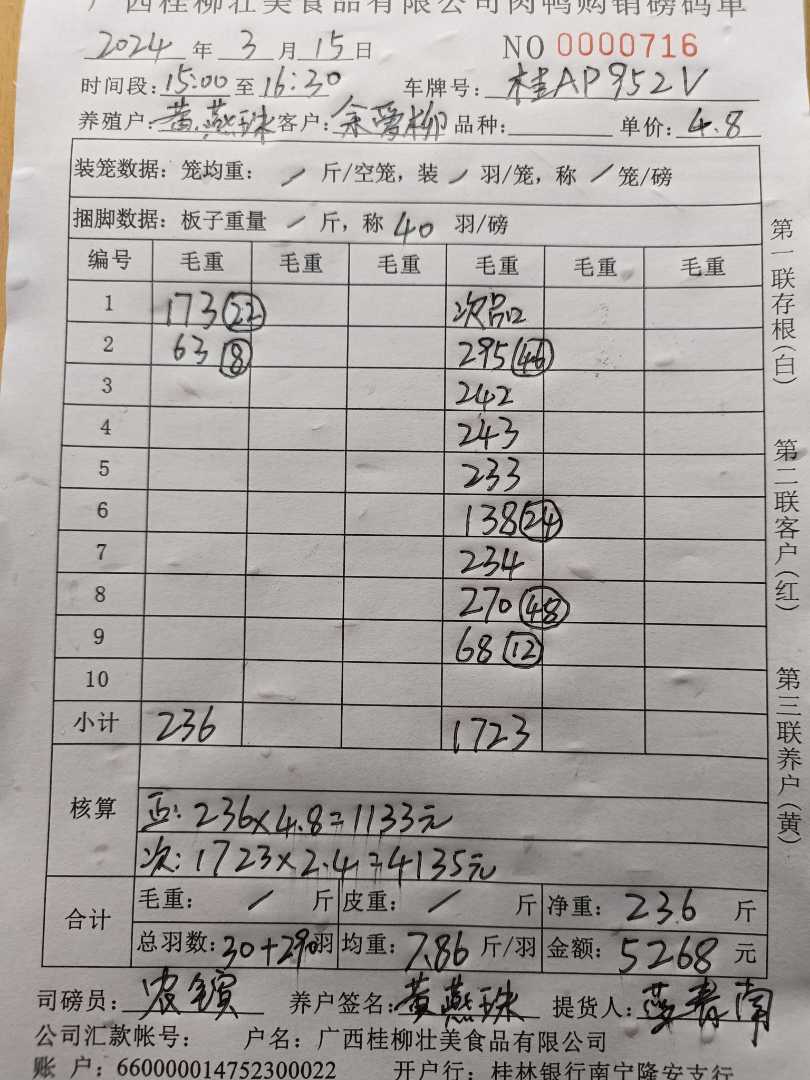 广西桂柳壮美食品有限公司肉鸭购销磅码单
2024 年 3 月 15 日 NO 0000716
时间段: 15:00 至 16:30 车牌号: 桂AP952V
养殖户: 黄燕珠 客户: 余爱柳 品种: 单价: 4.8
装笼数据: 笼均重: / 斤/空笼, 装 / 羽/笼, 称 / 笼/磅
捆脚数据: 板子重量 / 斤, 称 40 羽/磅
编号 毛重 毛重 毛重 毛重 毛重 毛重
1 173 22 次品
2 63 8 295 46
3 242
4 243
5 233
6 138 24
7 234
8 270 48
9 68 12
10
小计 236 1723
核算
正: 236×4.8=1133元
次: 1723×2.4=4135元
合计
毛重: / 斤 皮重: / 斤 净重: 236 斤
总羽数: 30+290羽 均重: 7.86 斤/羽 金额: 5268 元
司磅员: 农 养户签名: 黄燕珠 提货人:
公司汇款帐号: 户名: 广西桂柳壮美食品有限公司
账 户: 660000014752300022 开户行: 桂林银行南宁隆安支行
第一联存根(白)
第二联客户(红)
第三联养户(黄)